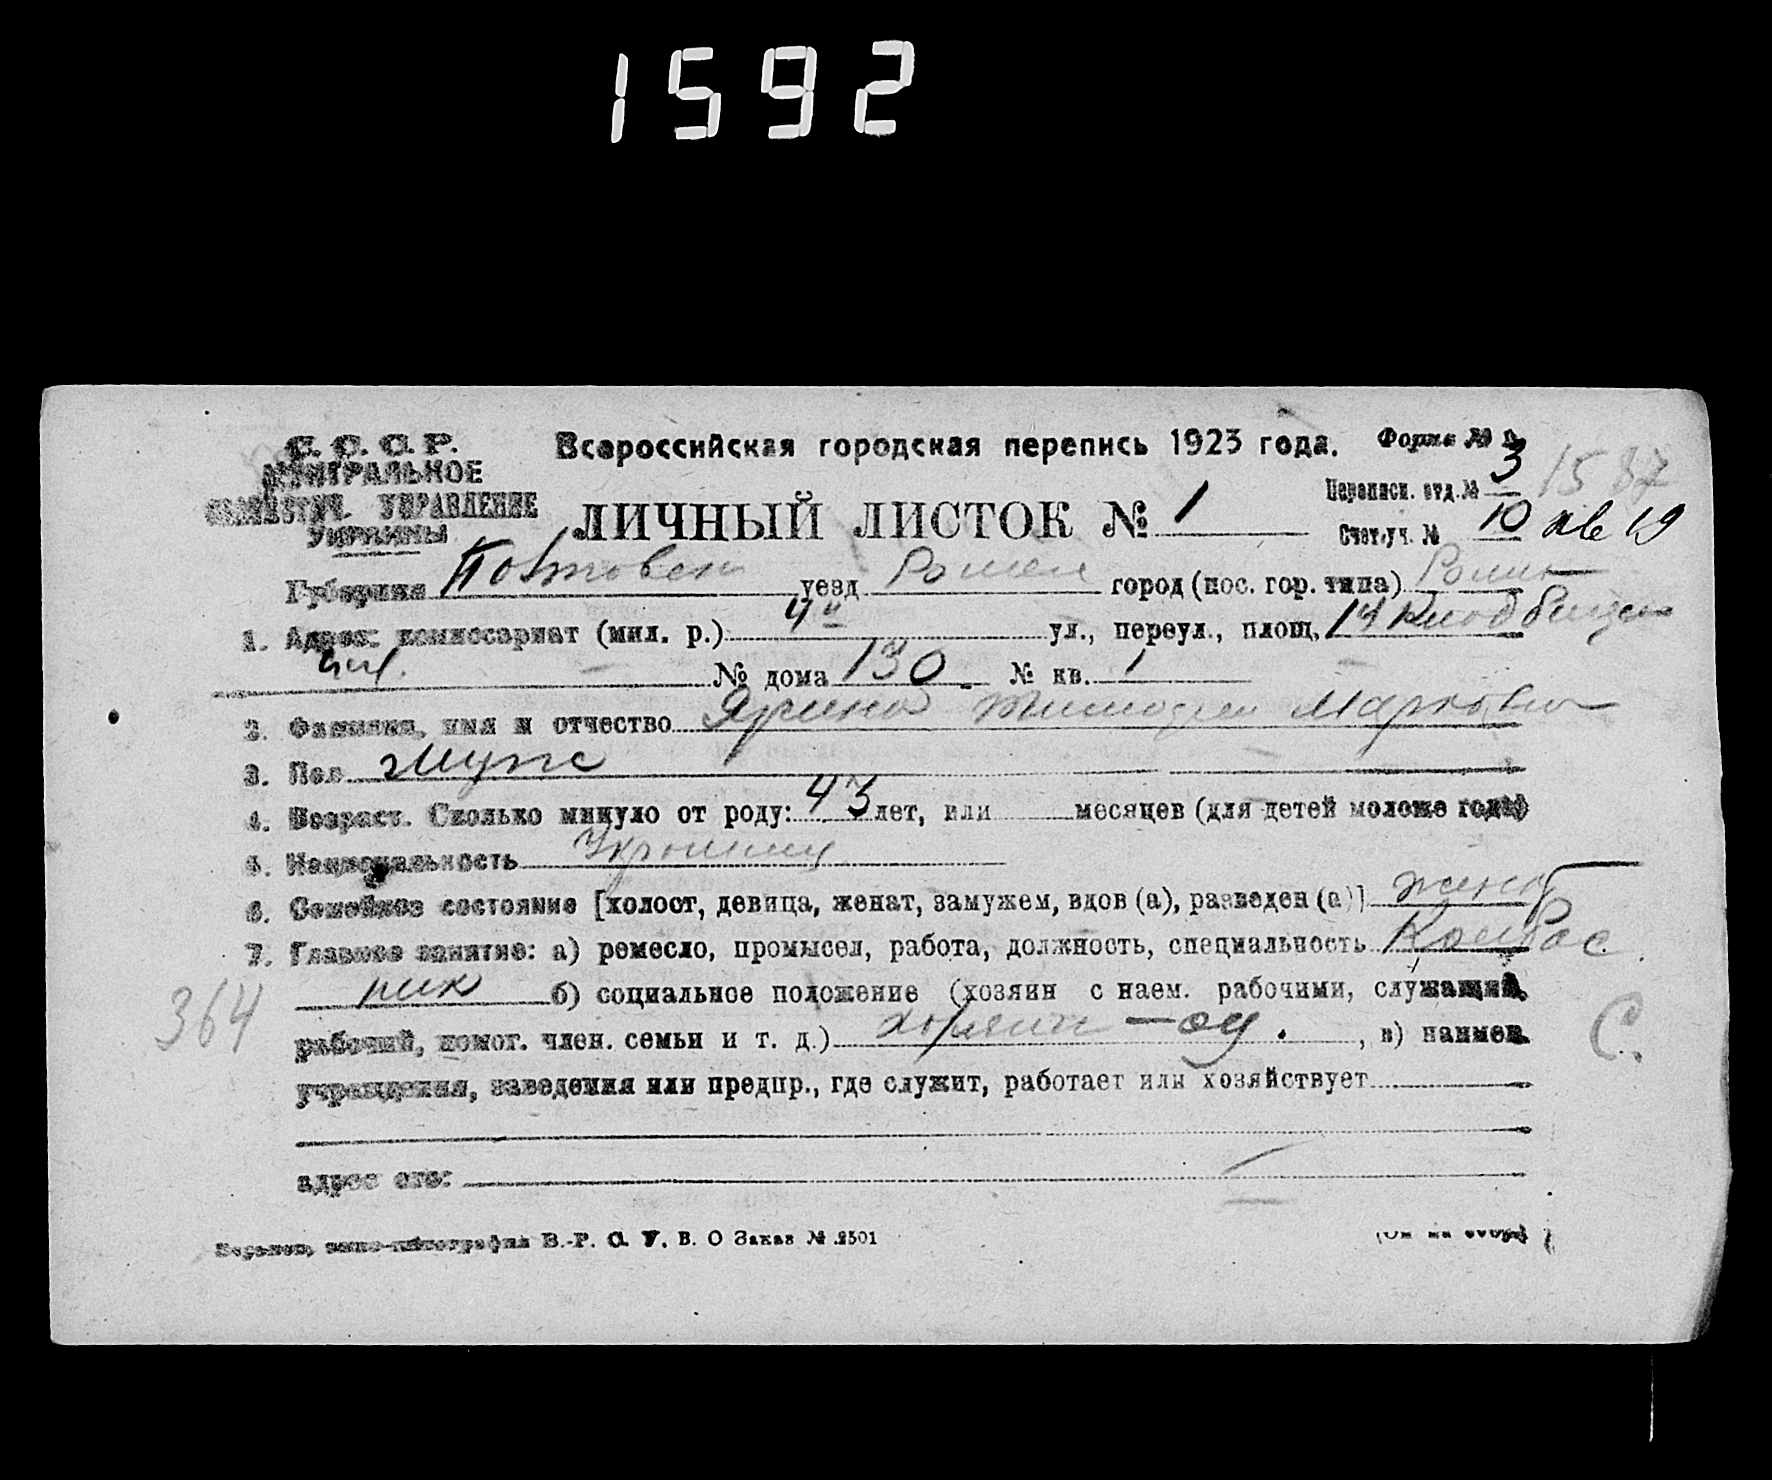 1592
С. С. С. Р.
ЦЕНТРАЛЬНОЕ
СТАТИСТИЧ. УПРАВЛЕНИЕ
УКРАИНЫ
Всероссийская городская перепись 1923 года.
Форма №
ЛИЧНЫЙ ЛИСТОК № 1
Переписн. отд. № 3 1587
Счет. уч. № 10
Губерния Полтовск уезд Ромен город (пос. гор. типа) Ромн
1. Адрес: комиссариат (мил. р.) ул., переул., площ.
№ дома 130 № кв. 1
2. Фамилия, имя и отчество Тимофей Маркович
3. Пол муж
4. Возраст. Сколько минуло от роду: 43 лет, или месяцев (для детей моложе года)
5. Национальность Украинец
6. Семейное состояние [холост, девица, женат, замужем, вдов (а), разведен (а)] женат
7. Главное занятие: а) ремесло, промысел, работа, должность, специальность Колбас
ник б) социальное положение (хозяин с наем. рабочими, служащий,
364
рабочий, помог. член. семьи и т. д.) хозяин — од. , в) наимен.
С.
учреждения, заведения или предпр., где служит, работает или хозяйствует
адрес его:
В.-Р. С. У. В. О Заказ № 2501